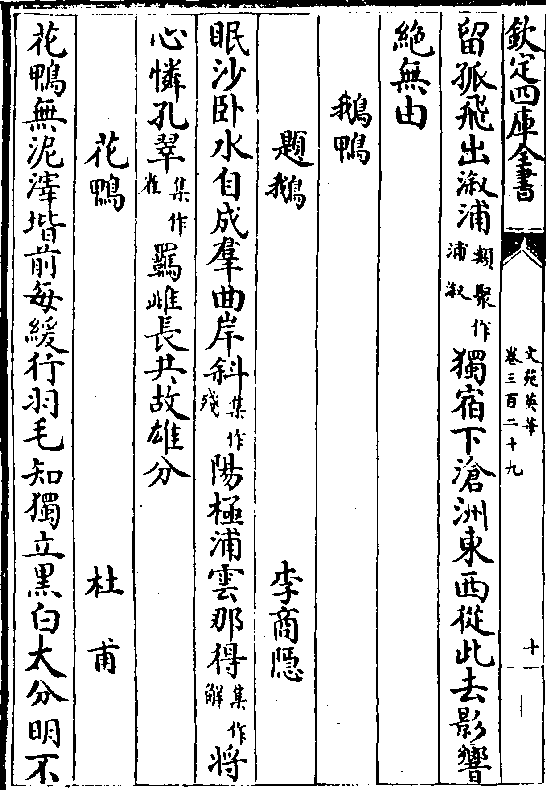 欽定四庫全書
文苑英華
卷三百二十九
十
留孤飛出溆浦類聚作浦溆獨宿下滄洲東西從此去影響
絶無由
鵝鴨
題鵝 李商隱
眠沙卧水自成羣曲岸斜集作殘陽極浦雲那得集作解將
心憐孔翠集作雀羈雌長共故雄分
花鴨 杜甫
花鴨無泥滓堦前每緩行羽毛知獨立黑白太分明不